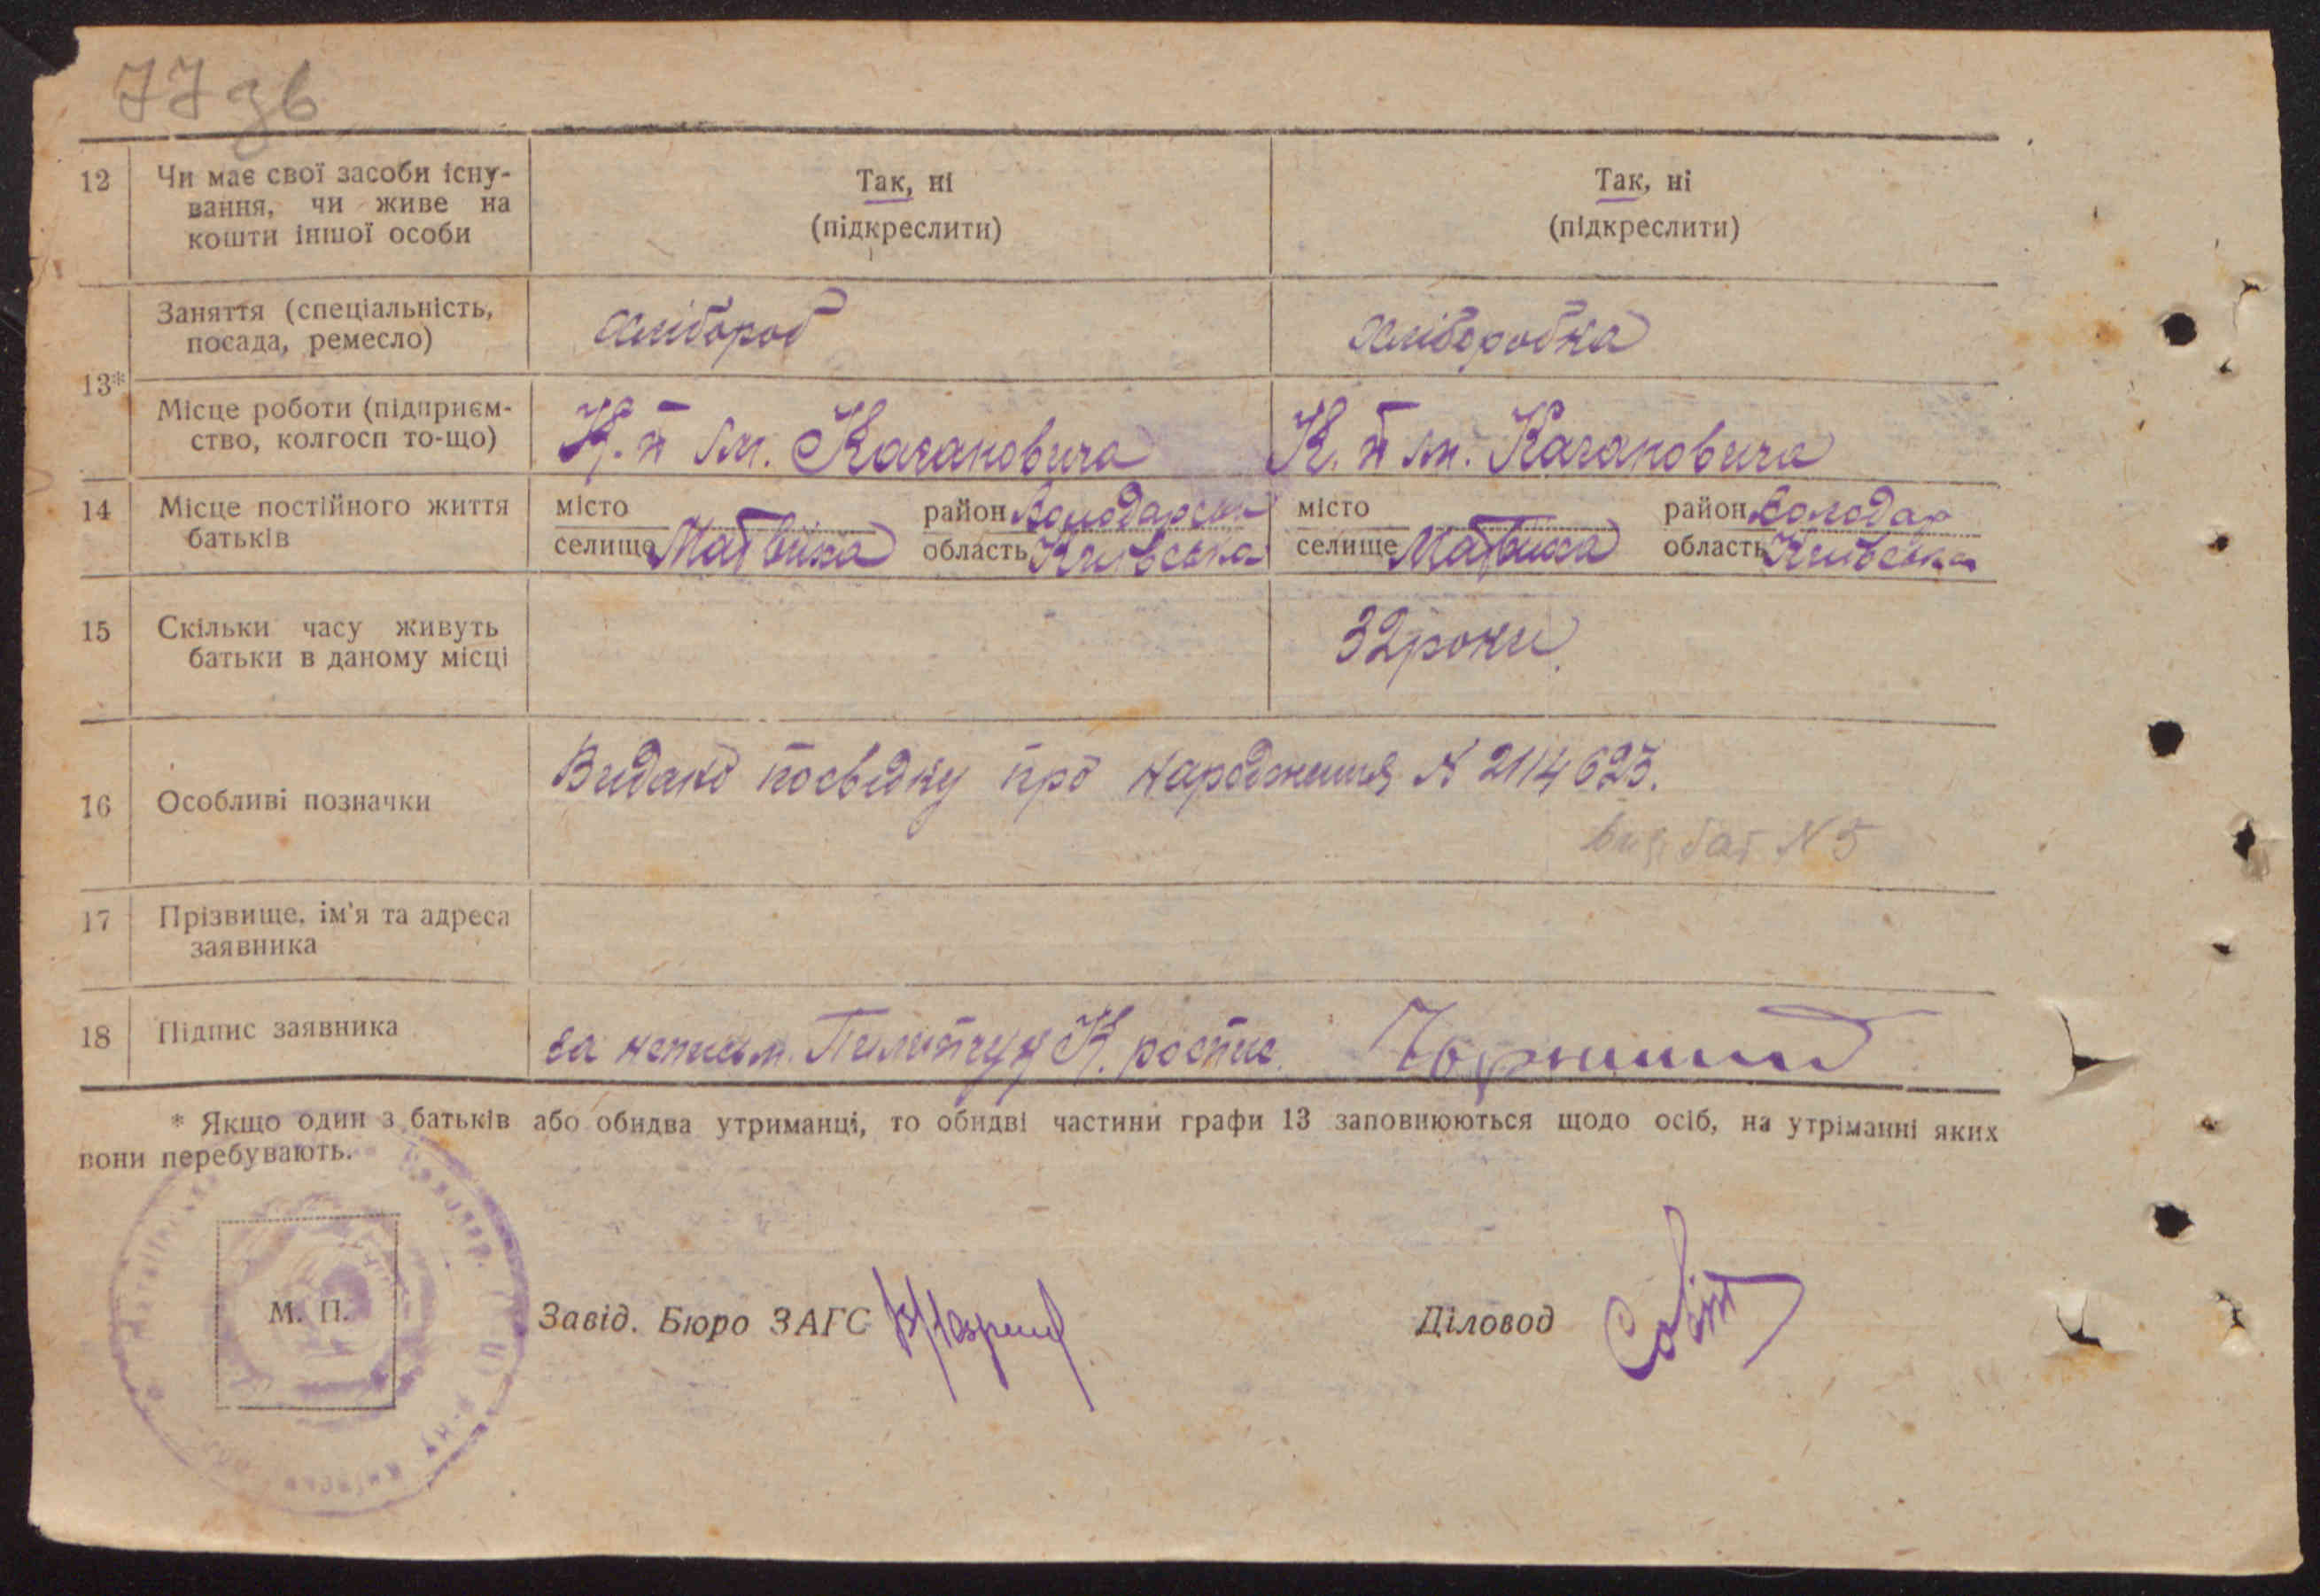 77 зв
12 Чи має свої засоби існу- Так, ні Так, ні
вання, чи живе на (підкреслити) (підкреслити)
кошти іншої особи
13* Заняття (спеціальність, хлібороб хліборобка
посада, ремесло)
Місце роботи (підприєм- К. п ім. Кагановича К. п ім. Кагановича
ство, колгосп то-що)
14 Місце постійного життя місто район Володарськ місто район Володар
батьків селище Матвіїха область Київська селище Матвіїха область Київська
15 Скільки часу живуть 32 роки
батьки в даному місці
16 Особливі позначки Видано посвідку про народження N 2114623.
N 5
17 Прізвище, ім'я та адреса
заявника
18 Підпис заявника за неписьм. Пилипчук К. роспис.
* Якщо один з батьків або обидва утриманці, то обидві частини графи 13 заповнюються щодо осіб, на утріманні яких
вони перебувають.
М. П. Завід. Бюро ЗАГС Діловод